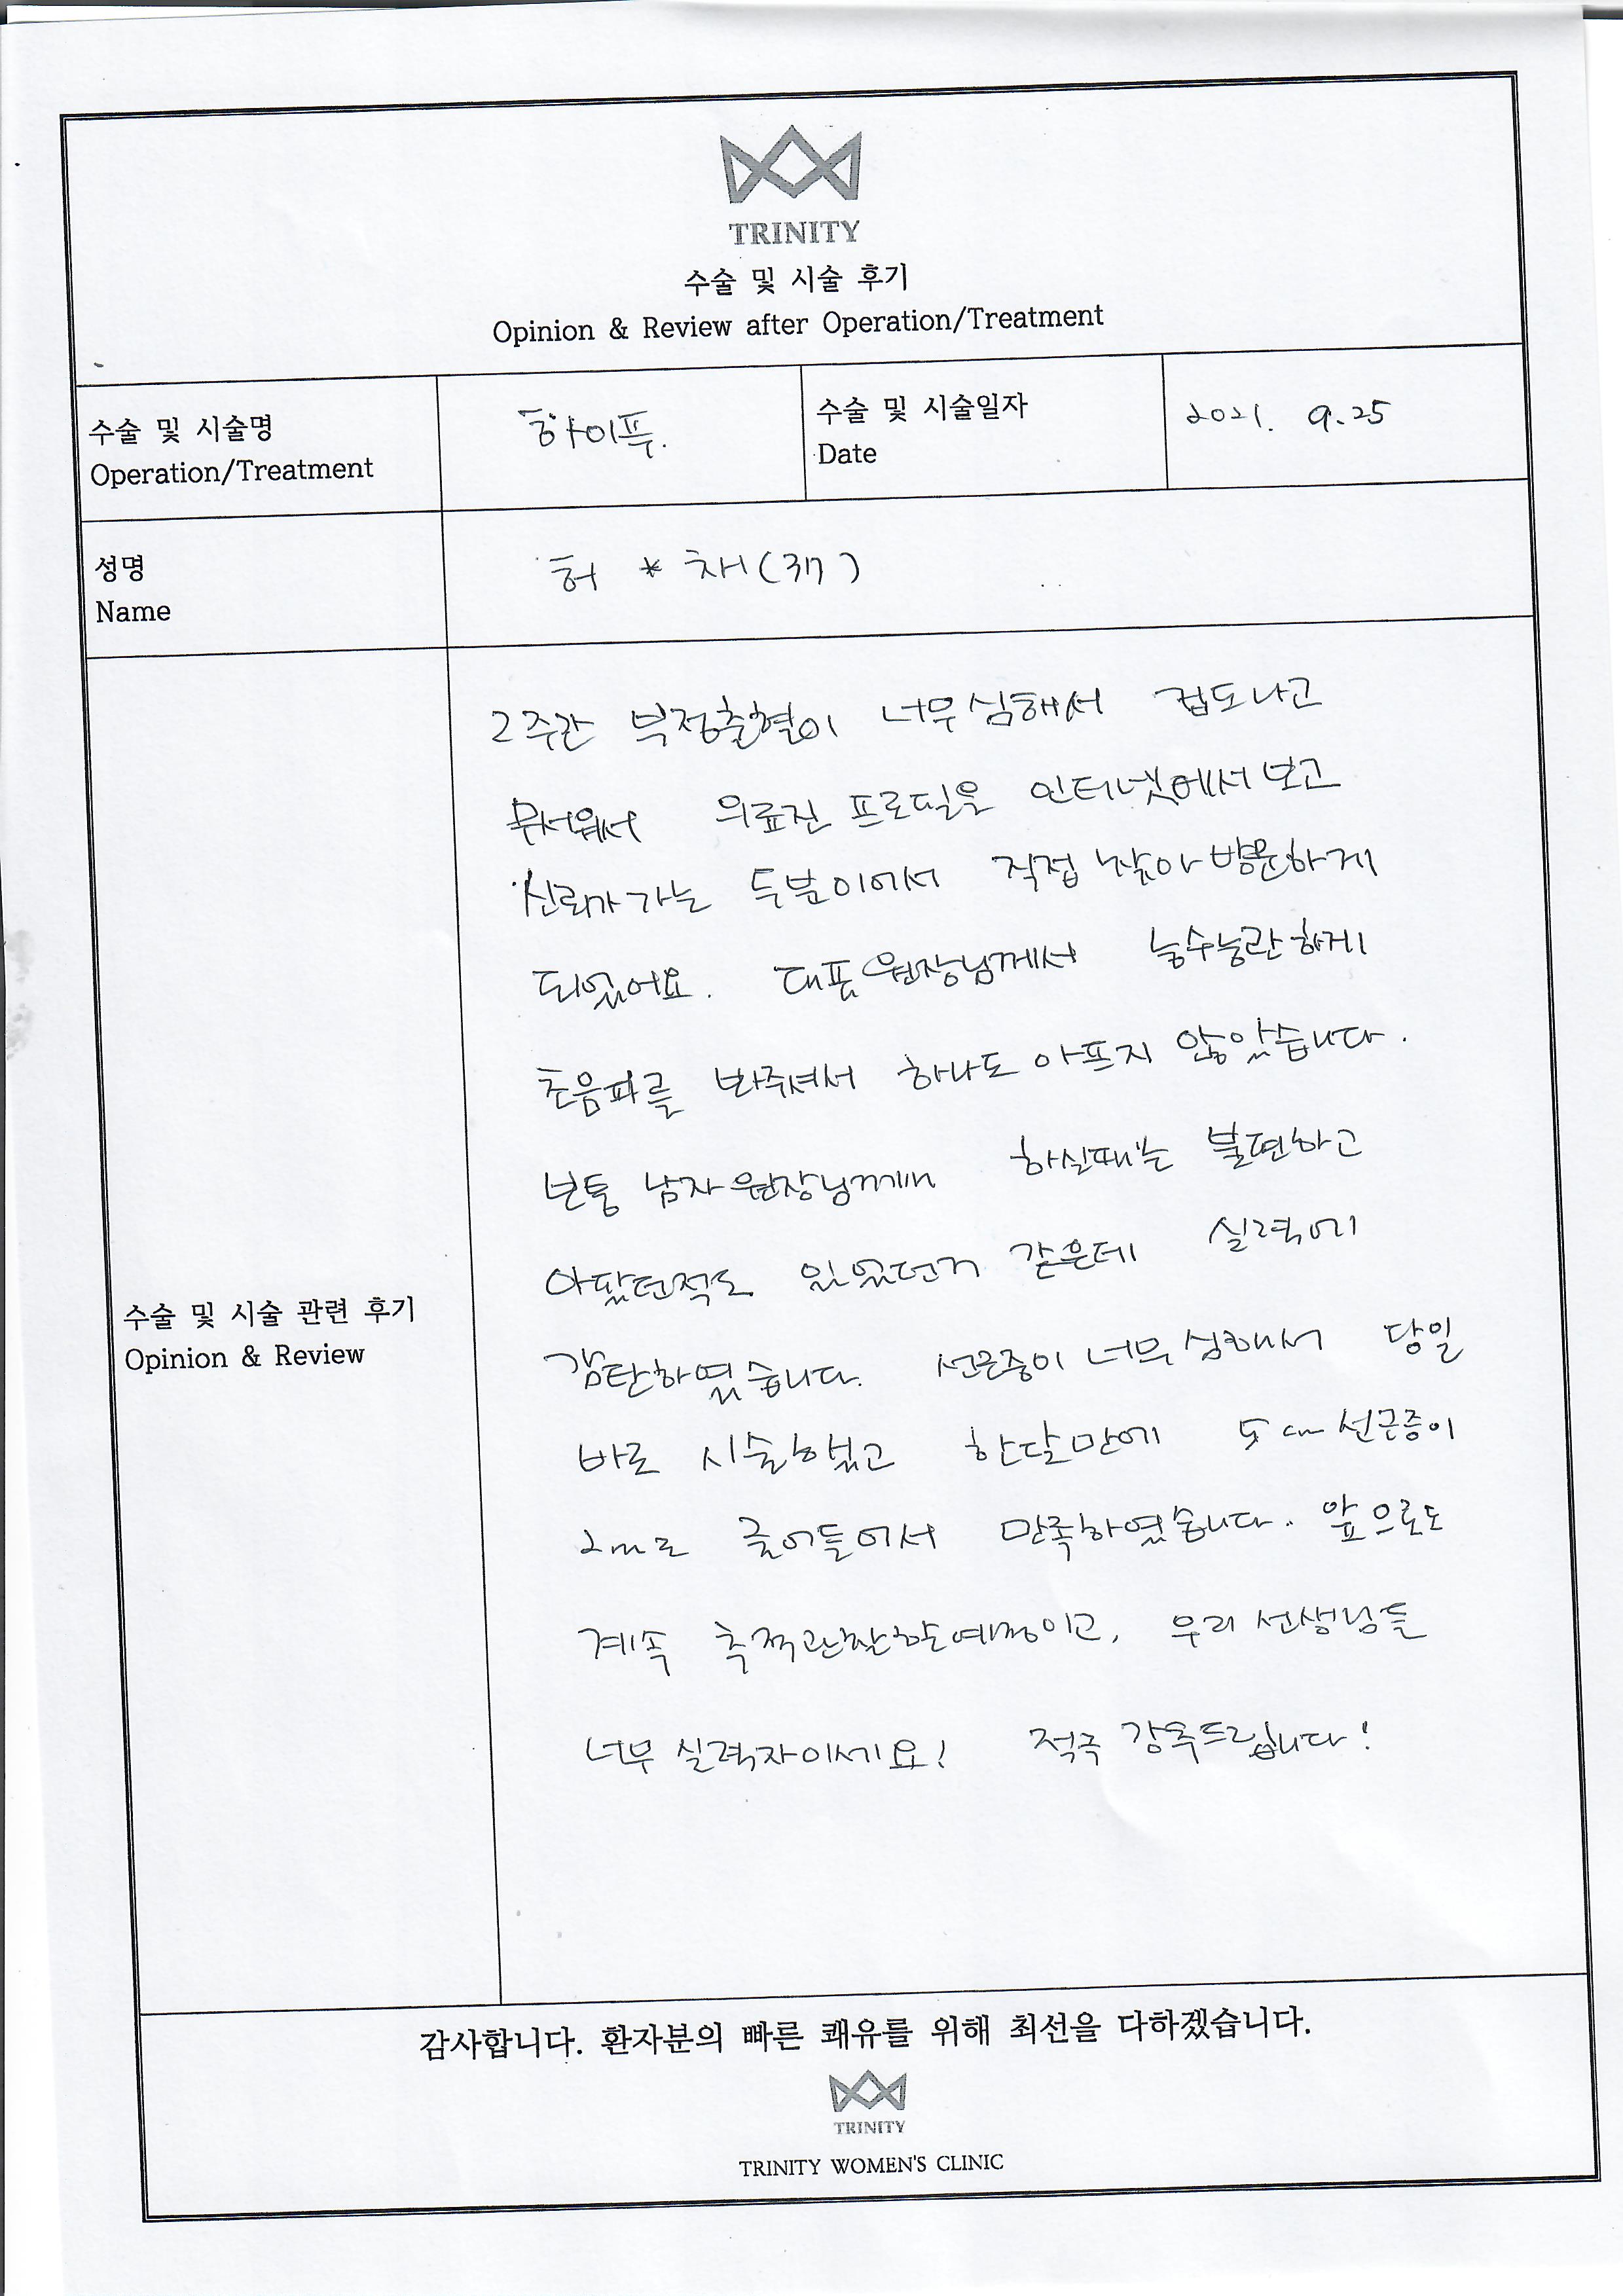 TRINITY
수술 및 시술 후기
Opinion & Review after Operation/Treatment
수술 및 시술명
Operation/Treatment
하이푸.
수술 및 시술일자
Date
2021. 9.25
성명
Name
허 * 채(37)
2주간 부정출혈이 너무심해서 겁도나고
무서워서 의료진 프로필을 인터넷에서보고
신뢰가가는 두분이에서 직접 찾아 방문하게
되었어요. 대표원장님께서 능수능란하게
초음파를 봐주셔서 하나도 아프지 않았습니다.
보통 남자원장님께서 하실때는 불편하고
아팠던적도 있었던거 같은데 실력에
감탄하였습니다. 선근증이 너무심해서 당일
바로 시술했고 한달만에 5cm 선근증이
2cm로 줄어들어서 만족하였습니다. 앞으로도
계속 추적관찰할예정이고, 우리 선생님들
너무 실력자이세요! 적극 강추드립니다!
수술 및 시술 관련 후기
Opinion & Review
감사합니다. 환자분의 빠른 쾌유를 위해 최선을 다하겠습니다.
TRINITY
TRINITY WOMEN'S CLINIC